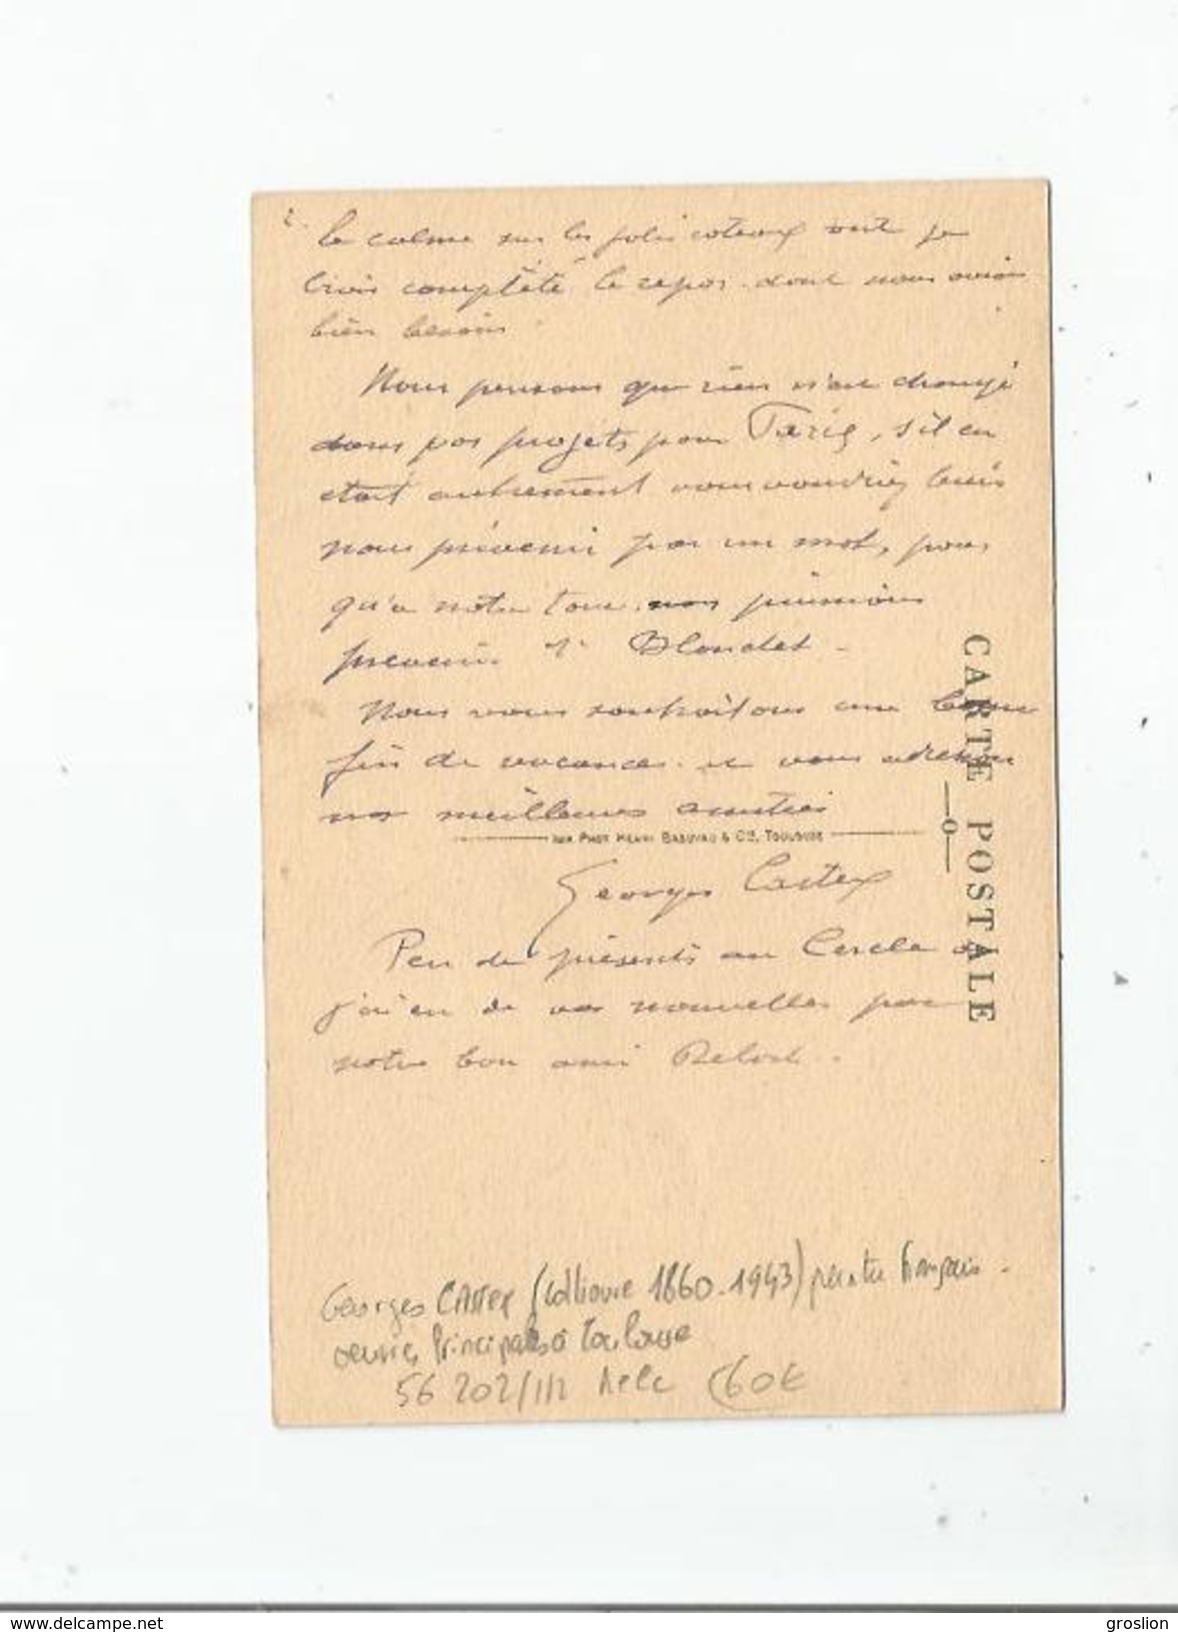 2.
le calme sur les jolis coteaux ont je
crois complété le repos dont nous avions
bien besoin.
Nous pensons que rien n'est changé
dans vos projets pour Paris, s'il en
était autrement vous voudriez bien
nous prévenir par un mot, pour
qu'à notre tour nous puissions
prévenir Mr Blondet.
Nous vous souhaitons une bonne
fin de vacances et vous adressons
nos meilleures amitiés
IMP. PHOT. HENRI BASUYAU & Cie, TOULOUSE
Georges Castex
Peu de présents au Cercle où
j'ai eu de vos nouvelles par
notre bon ami
CARTE POSTALE
Georges CASTEX (Collioure 1860-1943) peintre français.
oeuvres Principales à Toulouse
56 202/112 60€
www.delcampe.net
groslion